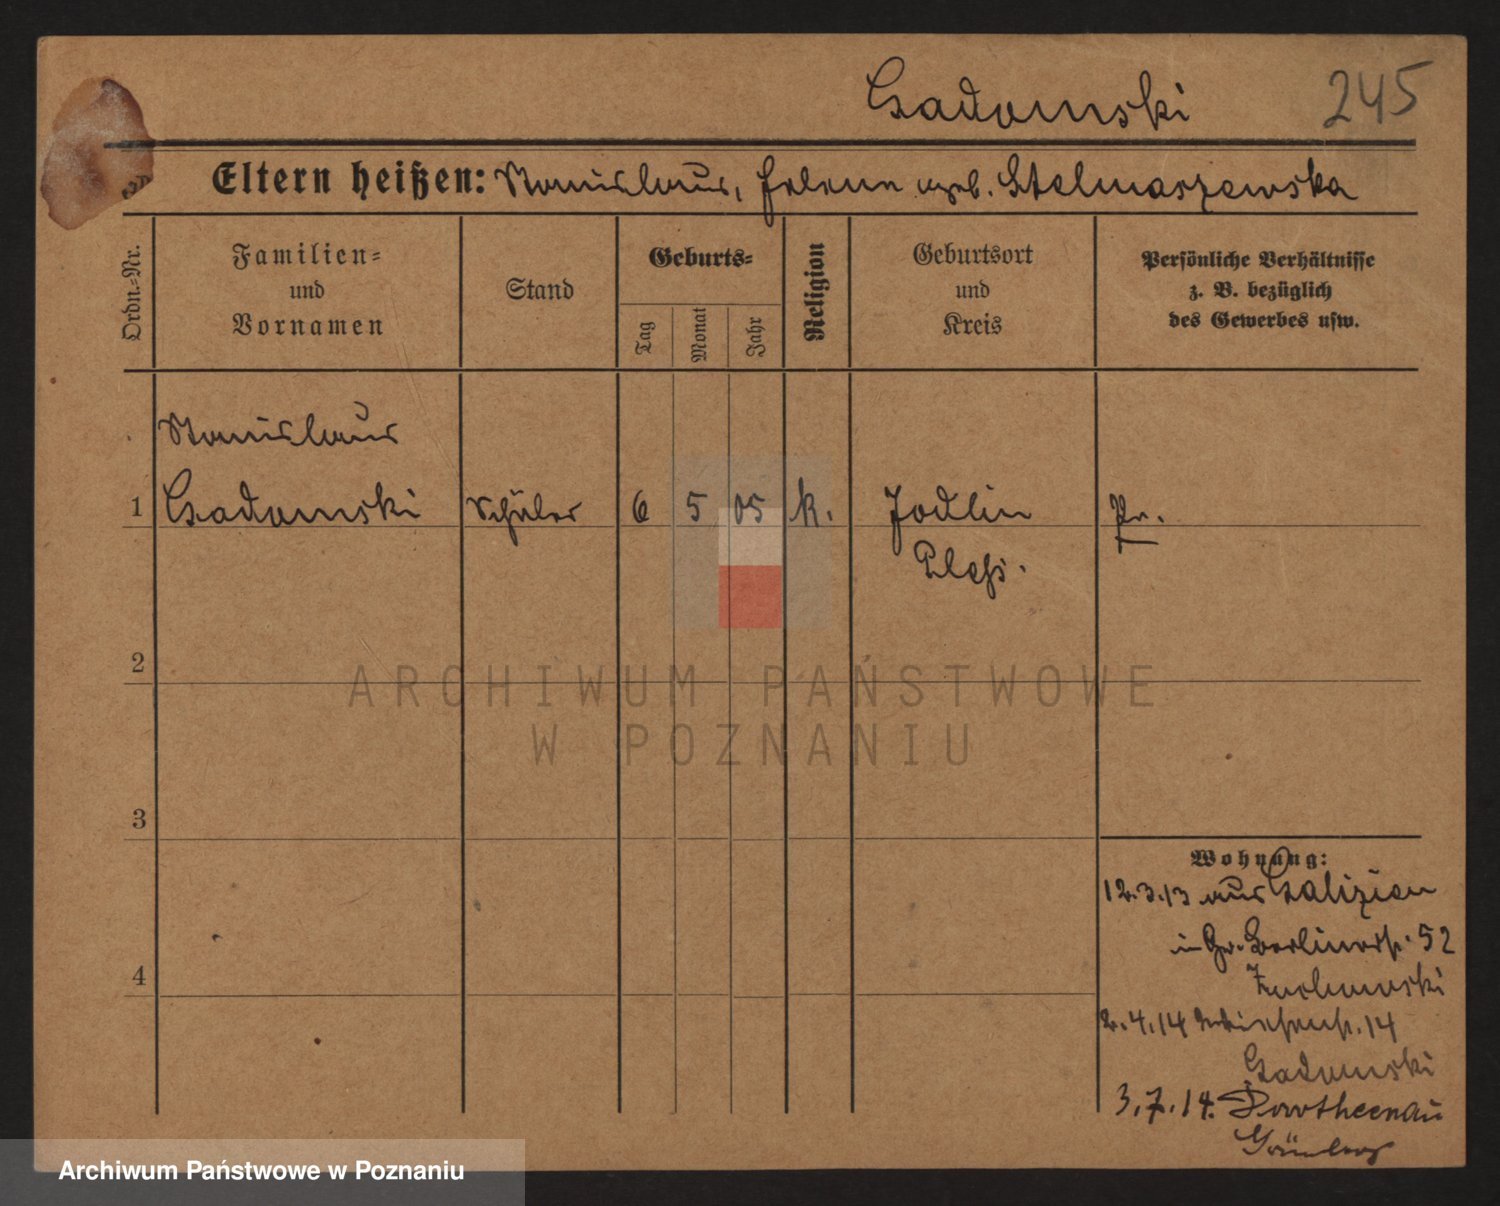 Gadomski 245
Eltern heißen: Stanislaus, Helene geb. Stelmaszewska
Ordn.-Nr.
Familien-
und
Vornamen
Stand
Geburts-
Tag
Monat
Jahr
Religion
Geburtsort
und
Kreis
Persönliche Verhältnisse
z. B. bezüglich
des Gewerbes usw.
Stanislaus
1 Gadomski Schüler 6 5 05 k. Jodlin Pr.
Pless.
2
3
4
Wohnung:
12.3.13 aus Galizien
in Gr. Berlinerstr. 52
Zuchowski
2.4.14 14
Gadomski
3.7.14. Dorotheenau
Grünberg
ARCHIWUM PAŃSTWOWE
W POZNANIU
Archiwum Państwowe w Poznaniu